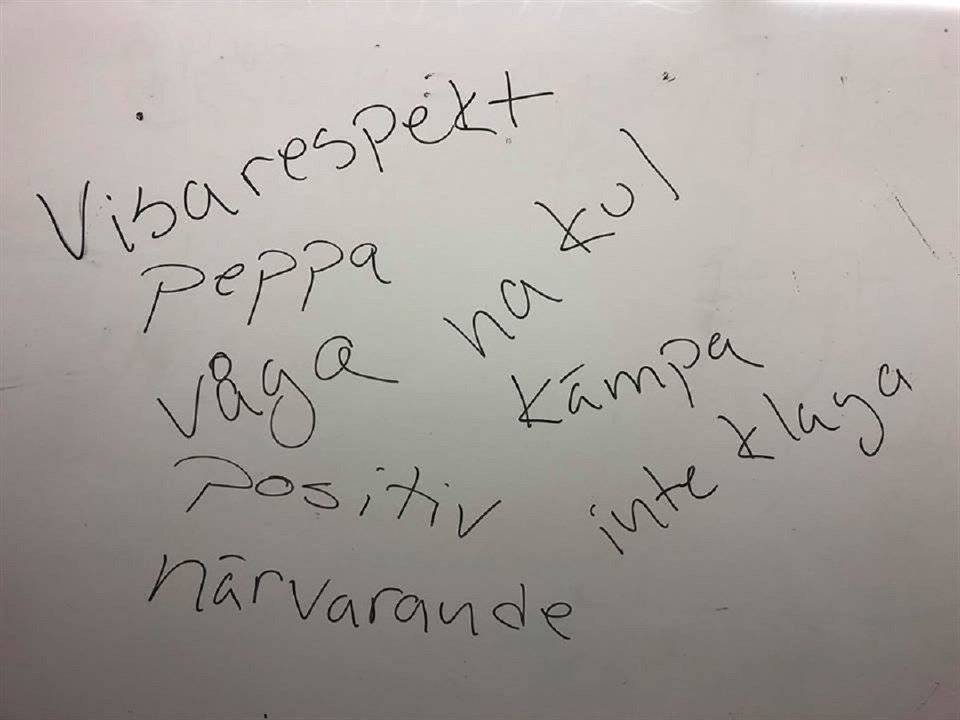 Visa respekt
peppa
våga
ha kul
kämpa
positiv
inte klaga
närvarande